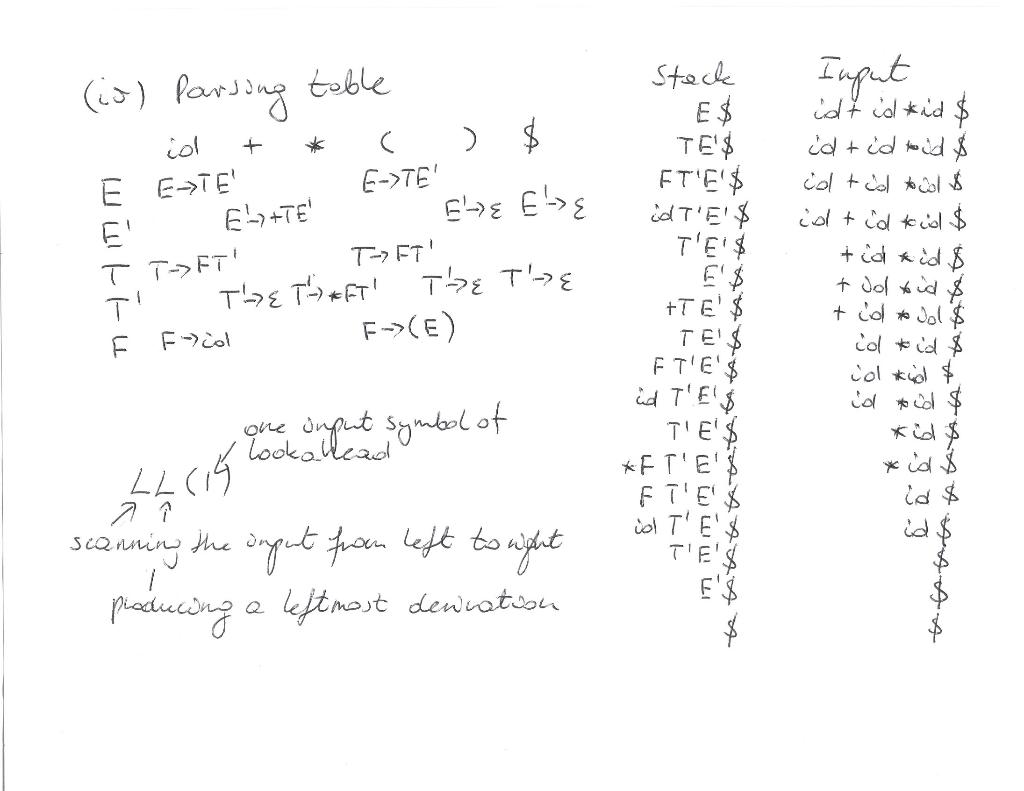 (iv) Parsing table
id + * ( ) $
E E→TE' E→TE'
E' E'→+TE' E'→ε E'→ε
T T→FT' T→FT'
T' T'→ε T'→*FT' T'→ε T'→ε
F F→id F→(E)
one input symbol of
lookahead
LL(1)
scanning the input from left to right
producing a leftmost derivation
Stack Input
E$ id + id * id $
TE'$ id + id * id $
FT'E'$ id + id * id $
idT'E'$ id + id * id $
T'E'$ + id * id $
E'$ + id * id $
+TE'$ + id * id $
TE'$ id * id $
FT'E'$ id * id $
id T'E'$ id * id $
T'E'$ * id $
*FT'E'$ * id $
FT'E'$ id $
id T'E'$ id $
T'E'$ $
E'$ $
$ $